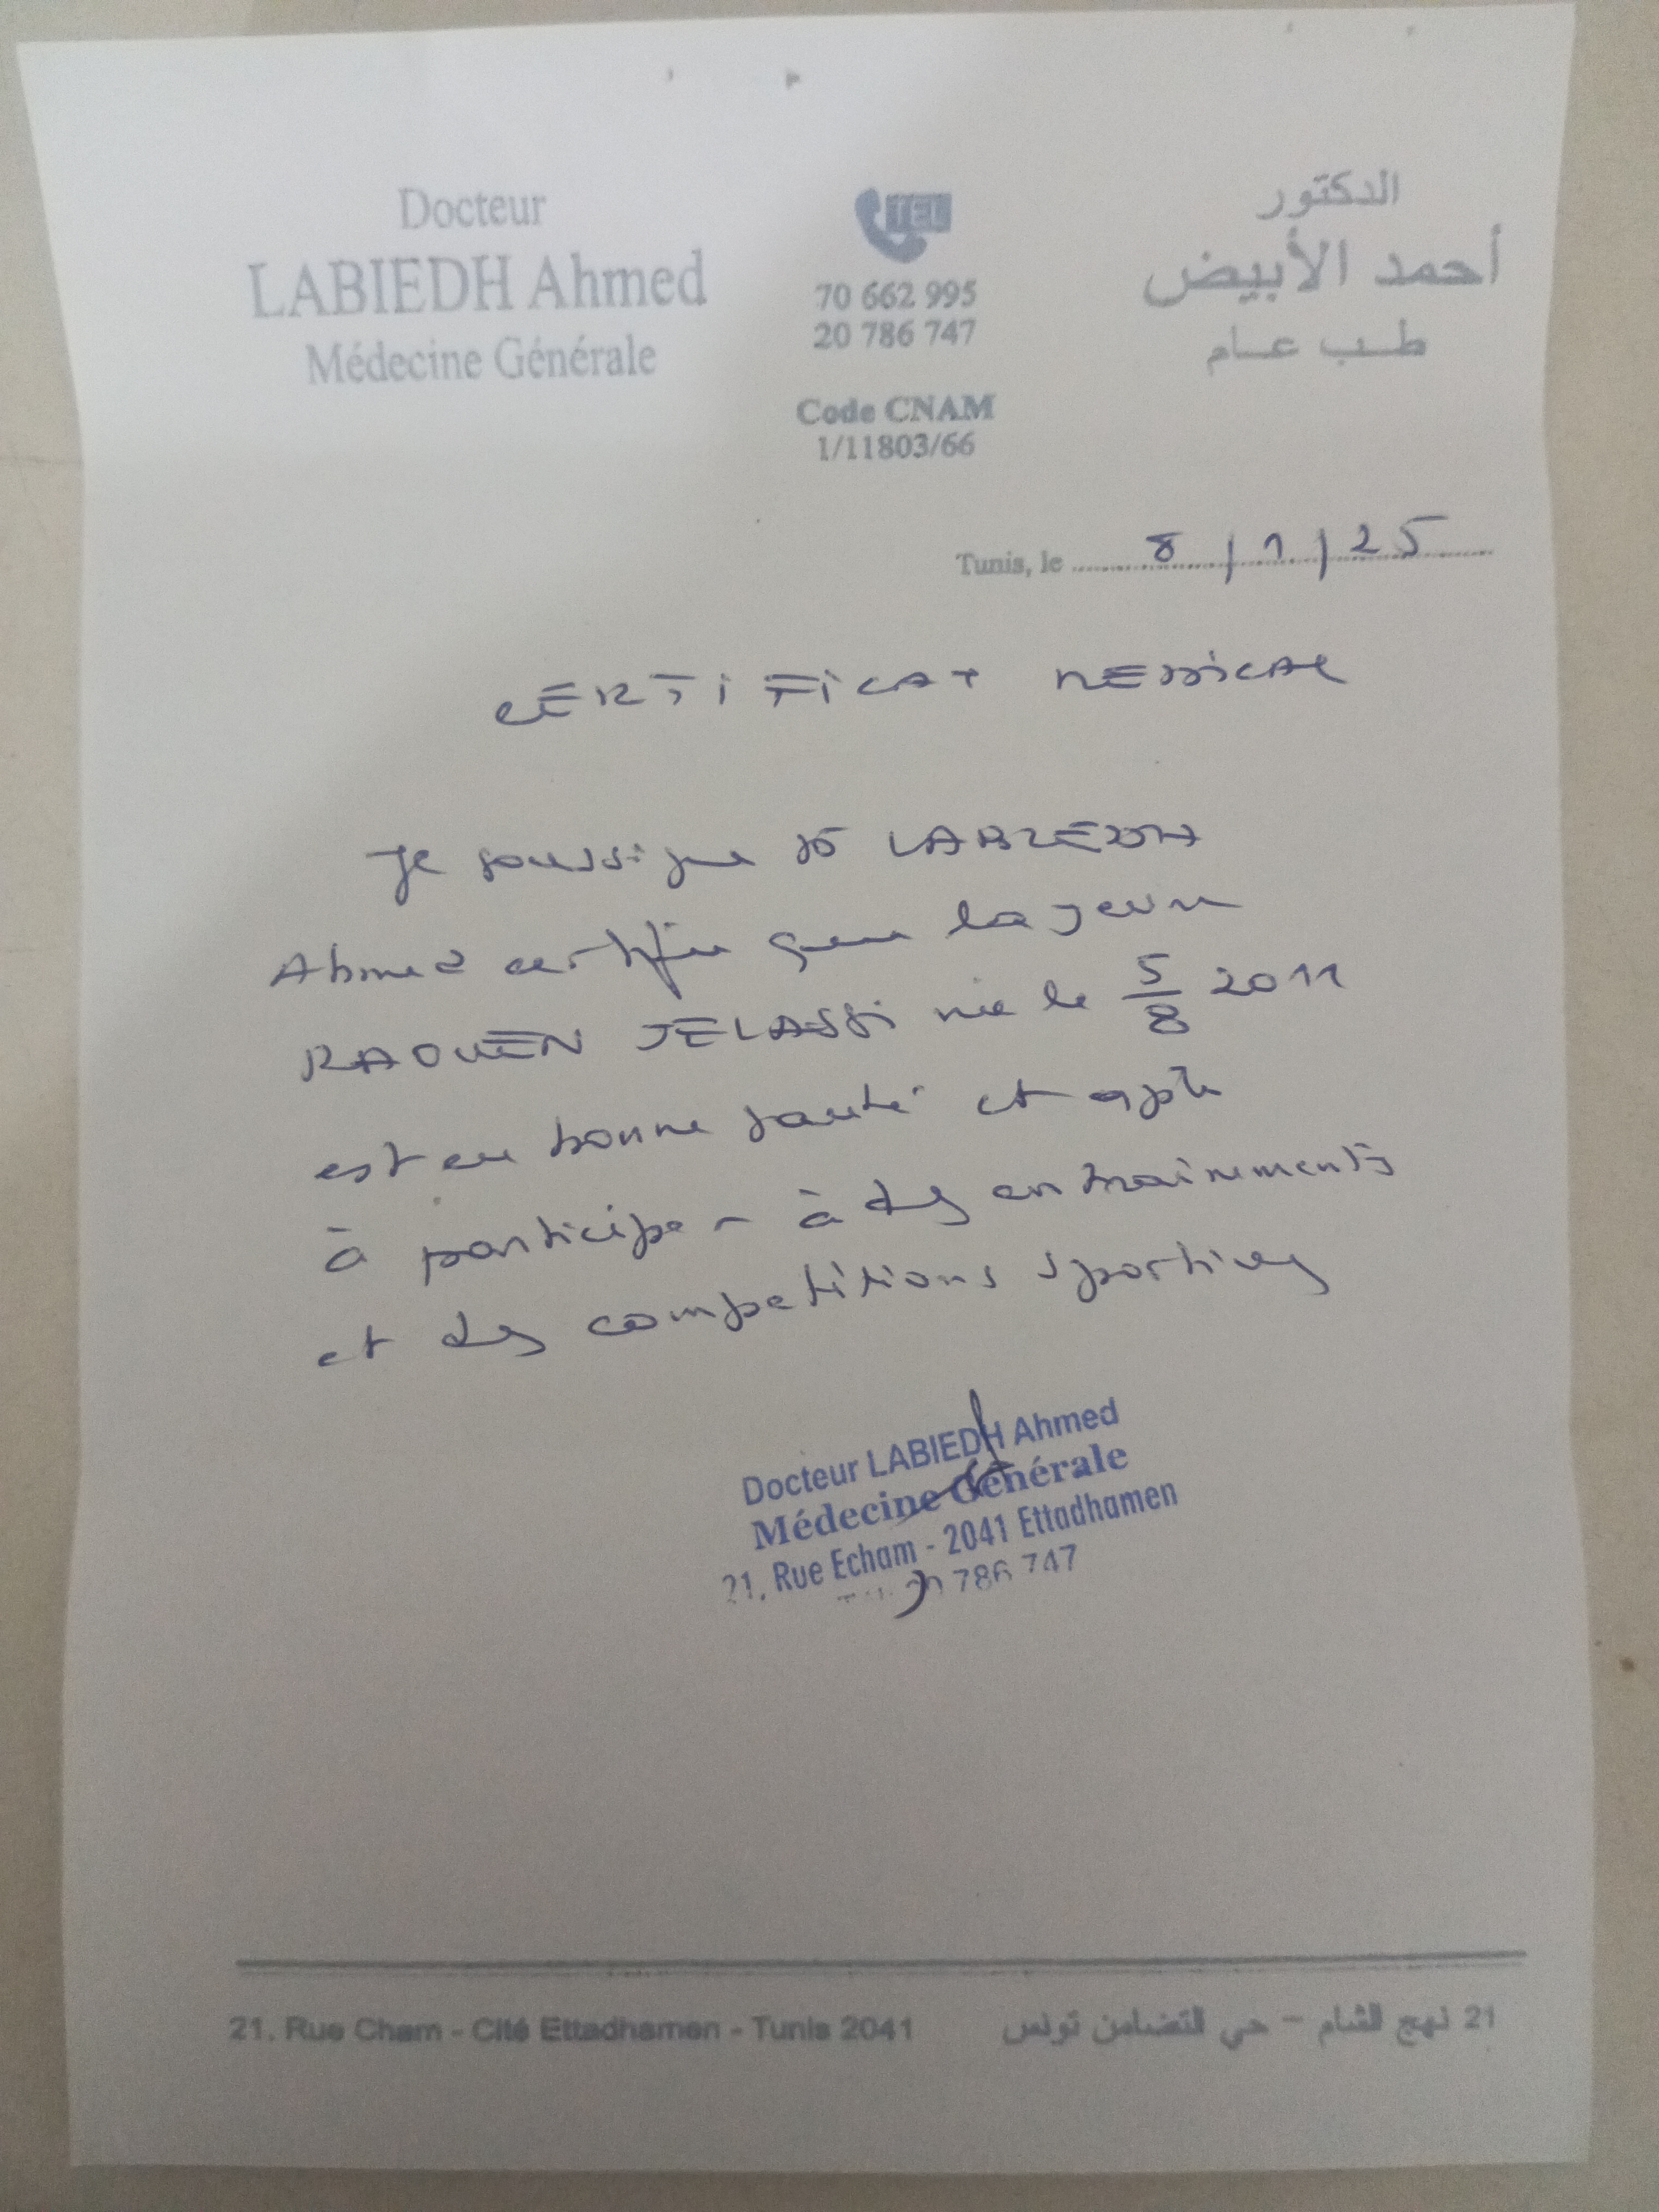 Docteur
LABIEDH Ahmed
Médecine Générale
TEL
70 662 995
20 786 747
Code CNAM
1/11803/66
الدكتور
أحمد الأبيض
طب عام
Tunis, le 8/1/25
CERTIFICAT MEDICAL
Je soussigné Dr LABIEDH
Ahmed certifie que la jeune
RAOUEN JELASSI née le 5/8 2011
est en bonne santé et apte
à participer à des entrainements
et des compétitions sportives
Docteur LABIEDH Ahmed
Médecine Générale
21, Rue Echam - 2041 Ettadhamen
20 786 747
21, Rue Cham - Cité Ettadhamen - Tunis 2041
21 نهج الشام – حي التضامن تونس